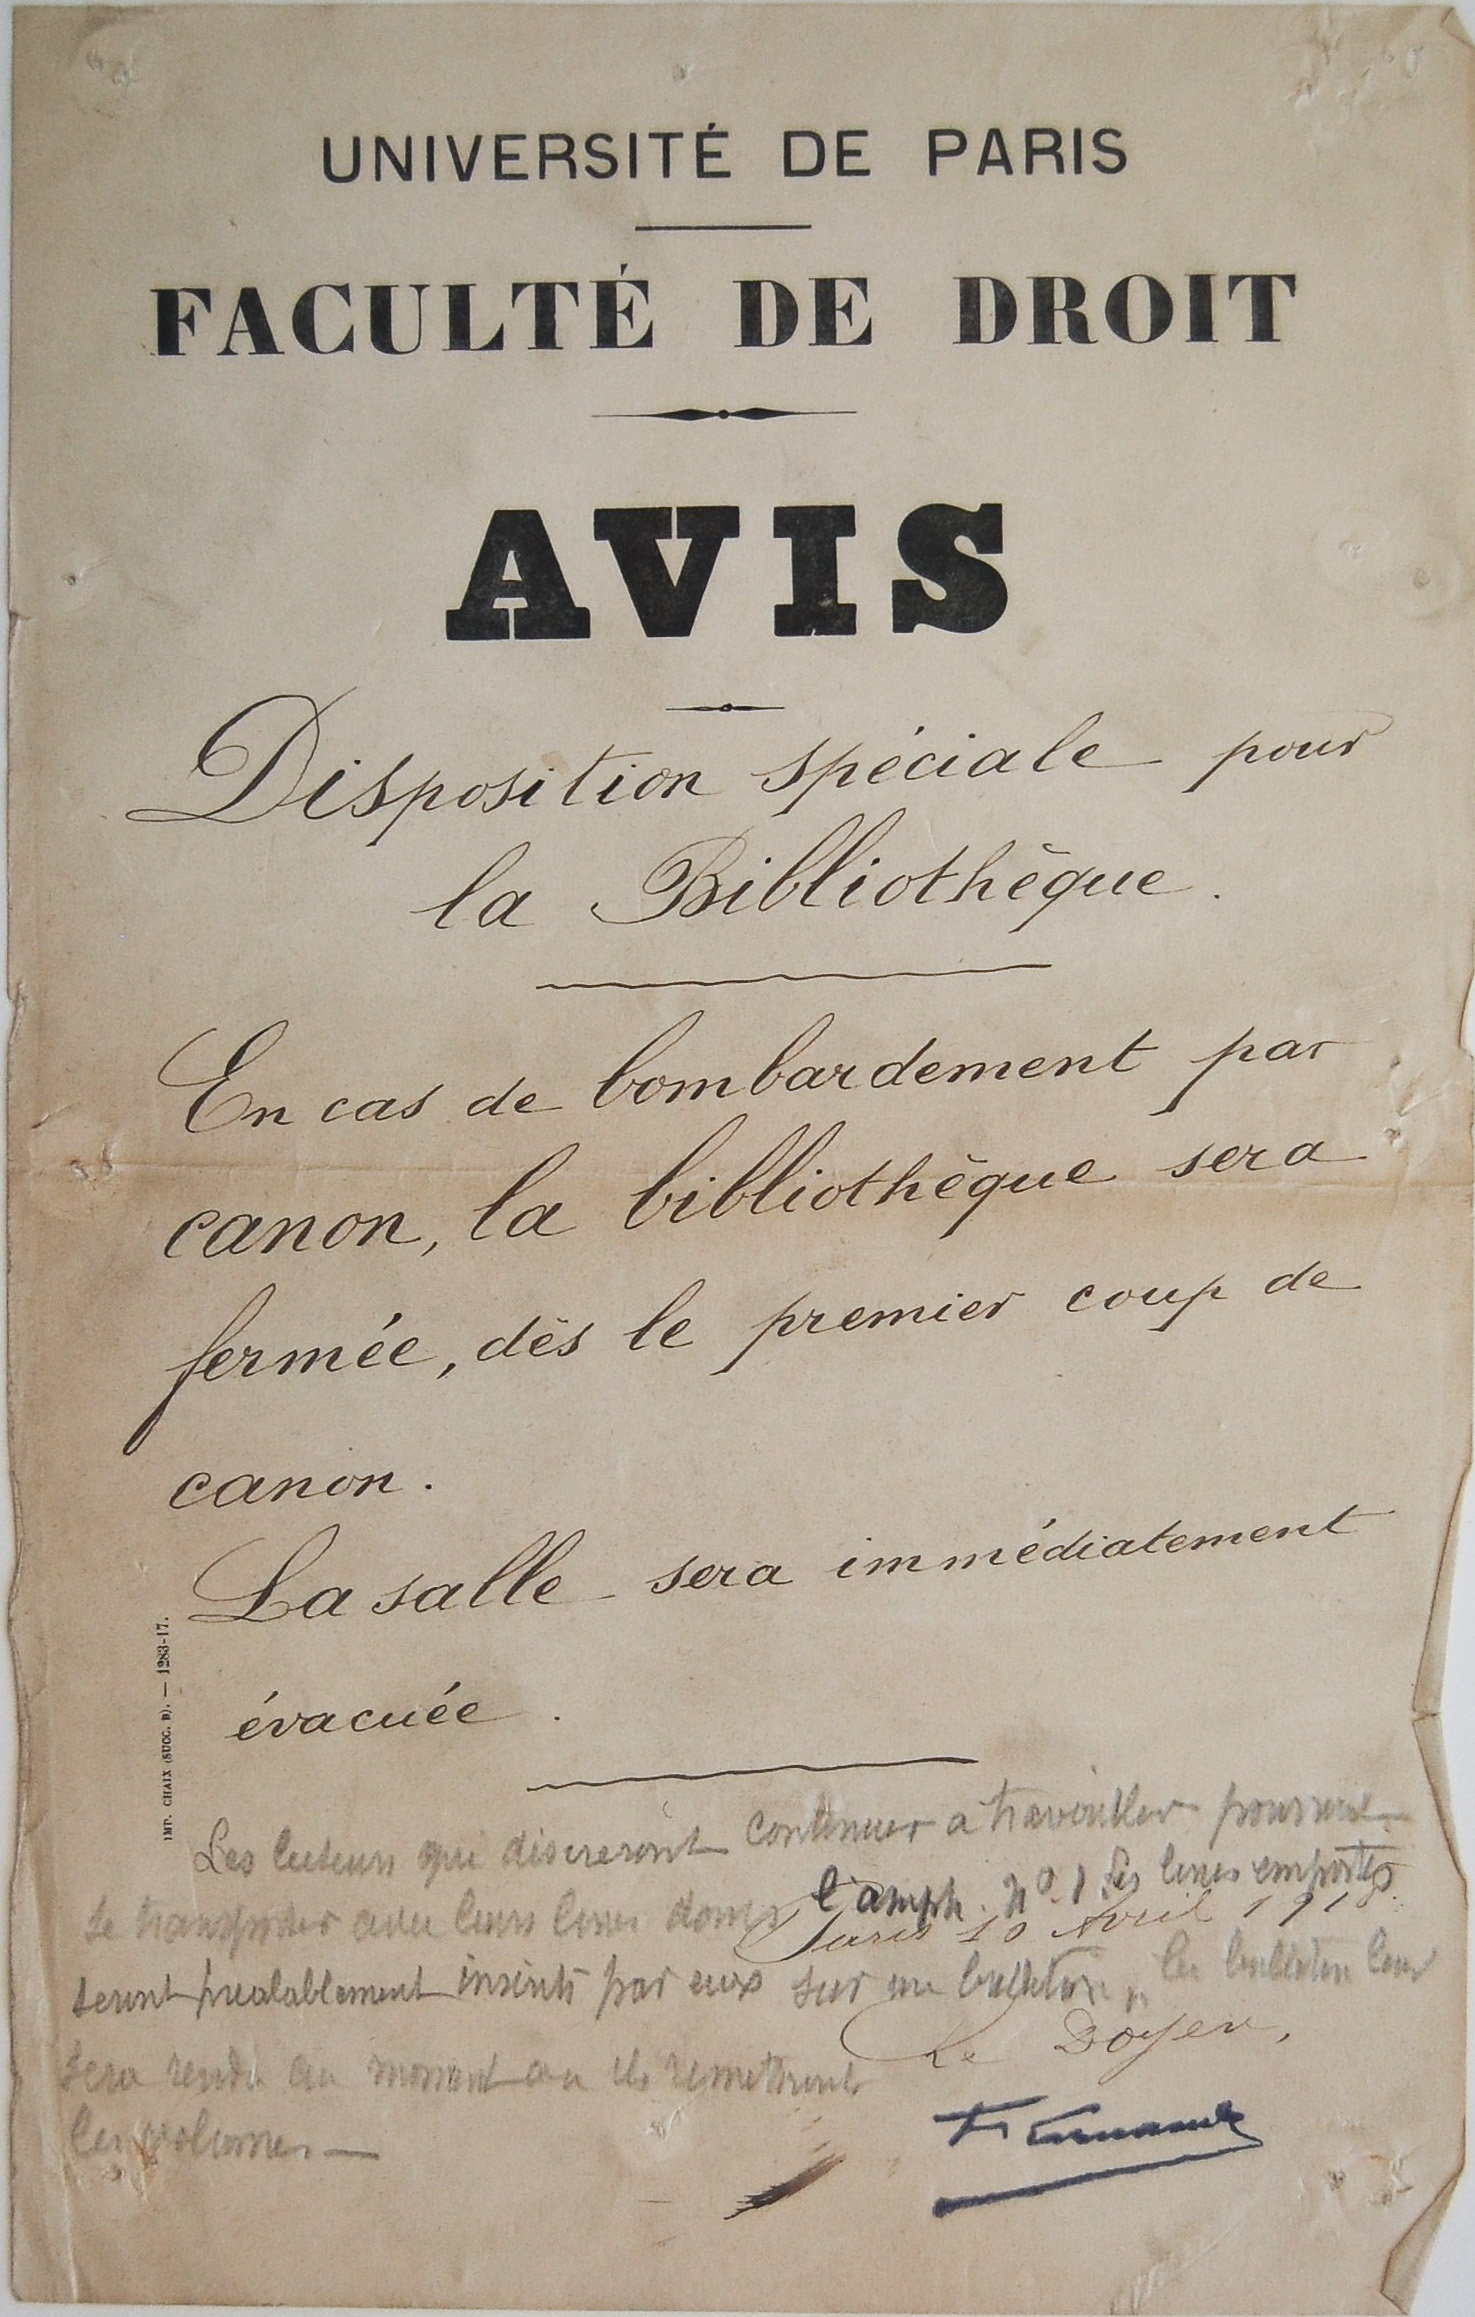 UNIVERSITÉ DE PARIS
FACULTÉ DE DROIT
AVIS
Disposition spéciale pour
la Bibliothèque.
En cas de bombardement par
canon, la bibliothèque sera
fermée, dès le premier coup de
canon.
La salle sera immédiatement
évacuée.
IMP. CHAIX (SUCC. B). — 1283-17.
Les lecteurs qui désireront continuer à travailler pourront
se transporter avec leurs livres dans l'amph. nº 1. Les livres emportés
Paris 10 Avril 1918.
seront préalablement inscrits par eux sur un bulletin, le bulletin leur
Le Doyen,
sera rendu au moment où ils remettront
les volumes —